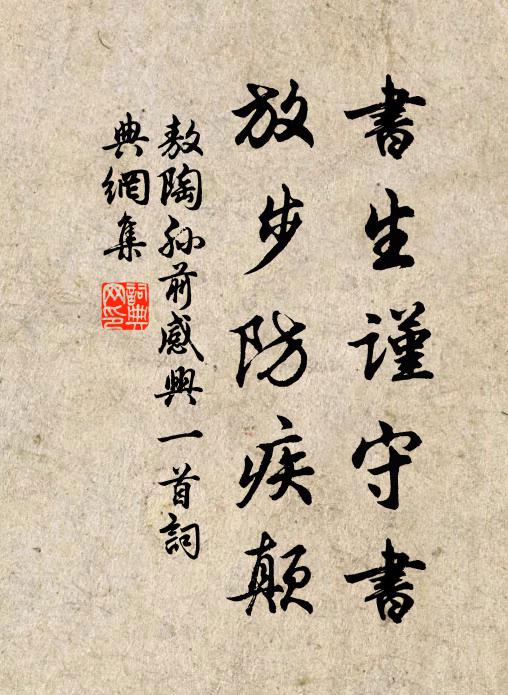 書生謹守書
放步防疾顛
敖陶孫前感興一首詞
典網集
詞典網印